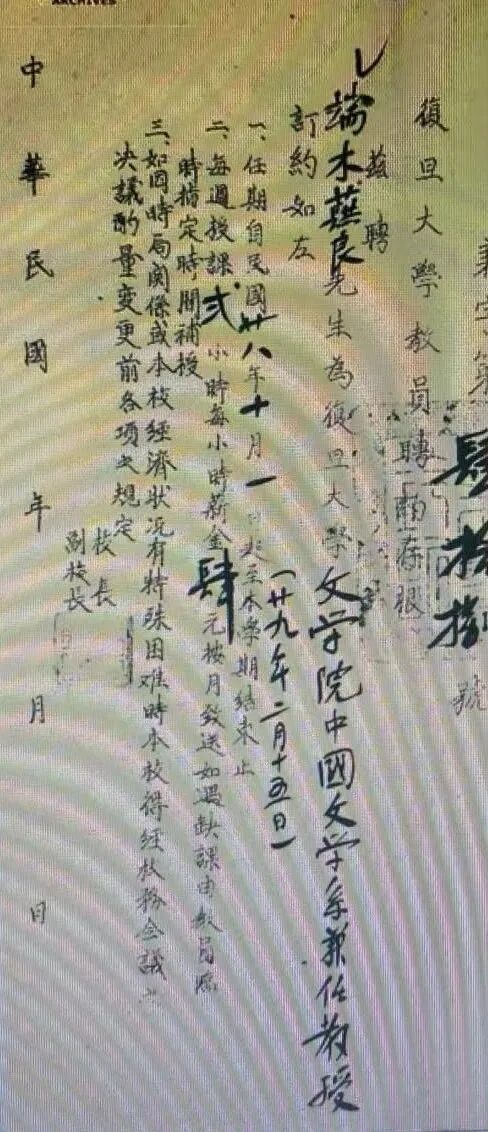 ARCHIVES
字第肆拾捌號
復旦大學教員聘函存根
茲聘
端木蕻良先生為復旦大學文学院中國文学系兼任教授
訂約如左
一、任期自民國廿八年十月一日起至本學期結束止
(廿九年二月十五日)
二、每週授課弍小時每小時薪金肆元按月發送如遇缺課由教員隨
時指定時間補授
三、如因時局關係或本校經濟狀况有特殊困难時本校得經校務会議之
决議酌量变更前各項之規定
校長
副校長
中華民國年月日